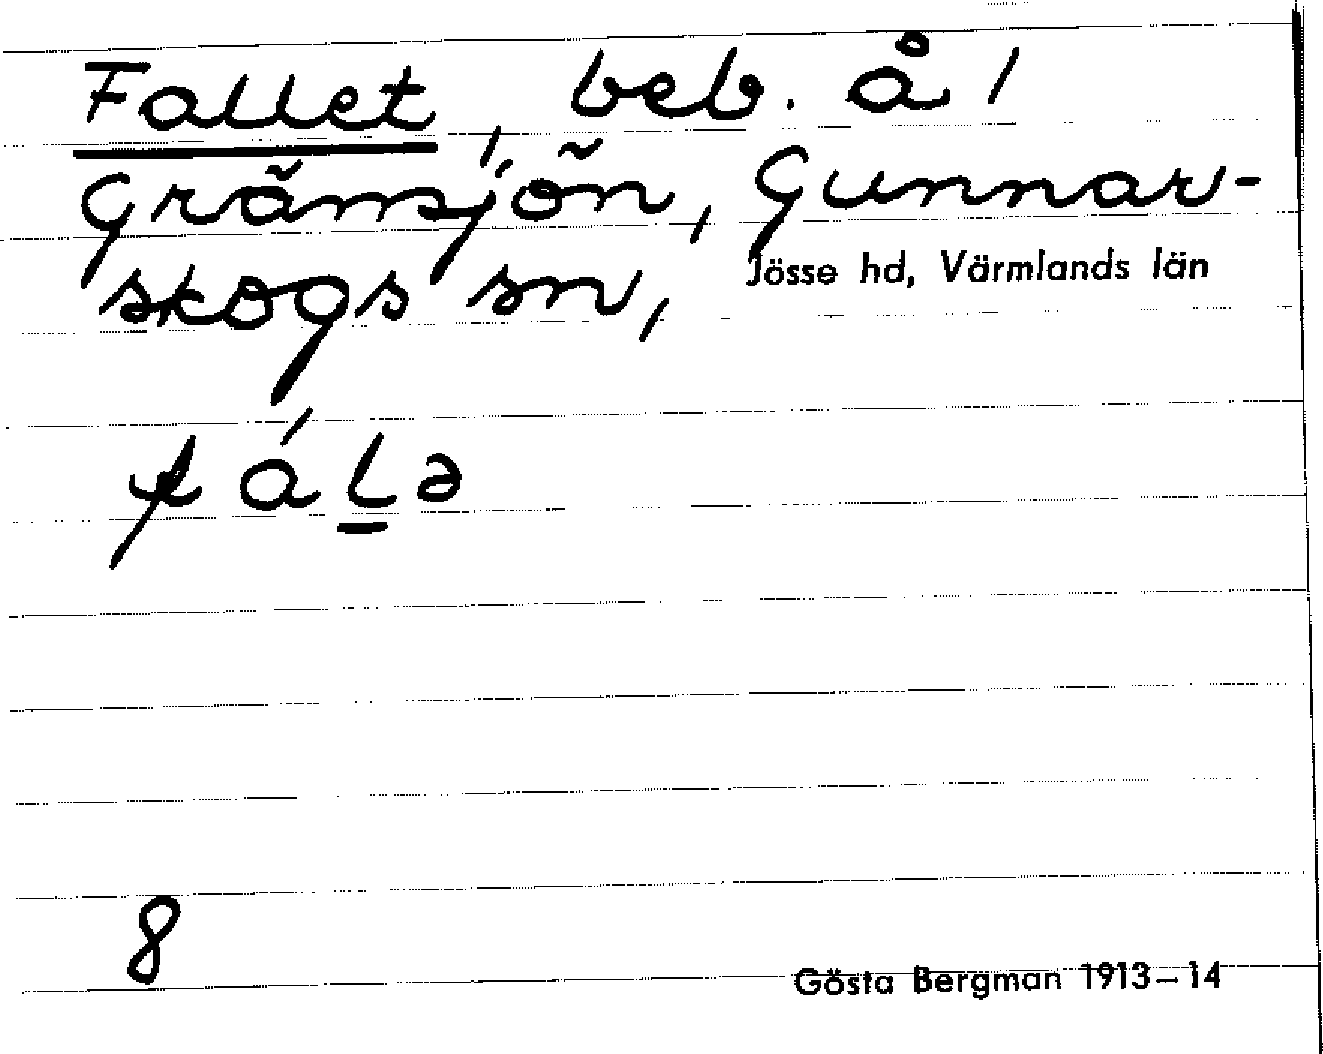 Fallet, beb. å 1
Gränsjön, Gunnar-
skogs sn,
Jösse hd, Värmlands län
fála̲ə
8
Gösta Bergman 1913–14